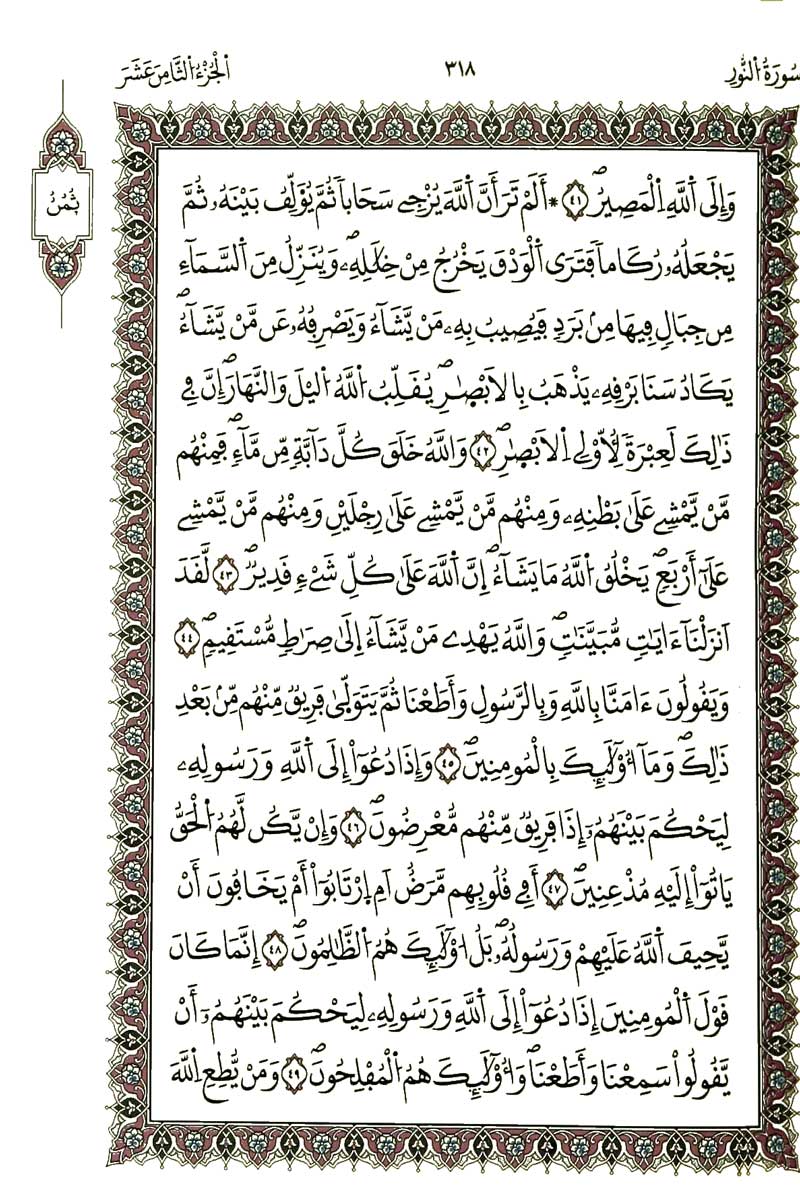 سُورَةُ النُّورِ
٣١٨
الْجُزْءُ الثَّامِنَ عَشَرَ
ثُمُنُ
وَإِلَى اَللَّهِ اِلْمَصِيرُۖ ۝٤١ *أَلَمْ تَرَ أَنَّ اَللَّهَ يُزْجِے سَحَاباٗ ثُمَّ يُؤَلِّفُ بَيْنَهُۥ ثُمَّ
يَجْعَلُهُۥ رُكَاماٗ فَتَرَى اَلْوَدْقَ يَخْرُجُ مِنْ خِلَٰلِهِۦۖ وَيُنَزِّلُ مِنَ اَلسَّمَآءِ
مِن جِبَالٖ فِيهَا مِنۢ بَرَدٖ فَيُصِيبُ بِهِۦ مَنْ يَّشَآءُ وَيَصْرِفُهُۥ عَن مَّنْ يَّشَآءُۖ
يَكَادُ سَنَا بَرْقِهِۦ يَذْهَبُ بِالَابْصٰ۪رِۖ يُقَلِّبُ اُللَّهُ اُليْلَ وَالنَّهَارَۖ إِنَّ فِے
ذَٰلِكَ لَعِبْرَةٗ لِّأُوْلِے اِلَابْصٰ۪رِۖ ۝٤٢ وَاللَّهُ خَلَقَ كُلَّ دَآبَّةٖ مِّن مَّآءٖۖ فَمِنْهُم
مَّنْ يَّمْشِے عَلَىٰ بَطْنِهِۦ وَمِنْهُم مَّنْ يَّمْشِے عَلَىٰ رِجْلَيْنِ وَمِنْهُم مَّنْ يَّمْشِے
عَلَىٰٓ أَرْبَعٖۖ يَخْلُقُ اُللَّهُ مَا يَشَآءُۖ إِنَّ اَللَّهَ عَلَىٰ كُلِّ شَےْءٖ قَدِيرٞۖ ۝٤٣ لَّقَدَ
اَنزَلْنَآ ءَايَٰتٖ مُّبَيَّنَٰتٖۖ وَاللَّهُ يَهْدِے مَنْ يَّشَآءُ اِلَىٰ صِرَٰطٖ مُّسْتَقِيمٖۖ ۝٤٤
وَيَقُولُونَ ءَامَنَّا بِاللَّهِ وَبِالرَّسُولِ وَأَطَعْنَا ثُمَّ يَتَوَلّ۪ىٰ فَرِيقٞ مِّنْهُم مِّنۢ بَعْدِ
ذَٰلِكَۖ وَمَآ أُوْلَٰٓئِكَ بِالْمُومِنِينَۖ ۝٤٥ وَإِذَا دُعُوٓاْ إِلَى اَللَّهِ وَرَسُولِهِۦ
لِيَحْكُمَ بَيْنَهُمُۥٓ إِذَا فَرِيقٞ مِّنْهُم مُّعْرِضُونَۖ ۝٤٦ وَإِنْ يَّكُن لَّهُمُ اُلْحَقُّ
يَاتُوٓاْ إِلَيْهِ مُذْعِنِينَۖ ۝٤٧ أَفِے قُلُوبِهِم مَّرَضٌ اَمِ اِرْتَابُوٓاْ أَمْ يَخَافُونَ أَنْ
يَّحِيفَ اَللَّهُ عَلَيْهِمْ وَرَسُولُهُۥۖ بَلُ ا۟وْلَٰٓئِكَ هُمُ اُلظَّٰلِمُونَۖ ۝٤٨ إِنَّمَا كَانَ
قَوْلَ اَلْمُومِنِينَ إِذَا دُعُوٓاْ إِلَى اَللَّهِ وَرَسُولِهِۦ لِيَحْكُمَ بَيْنَهُمُۥٓ أَنْ
يَّقُولُواْ سَمِعْنَا وَأَطَعْنَاۖ وَأُوْلَٰٓئِكَ هُمُ اُلْمُفْلِحُونَۖ ۝٤٩ وَمَنْ يُّطِعِ اِللَّهَ